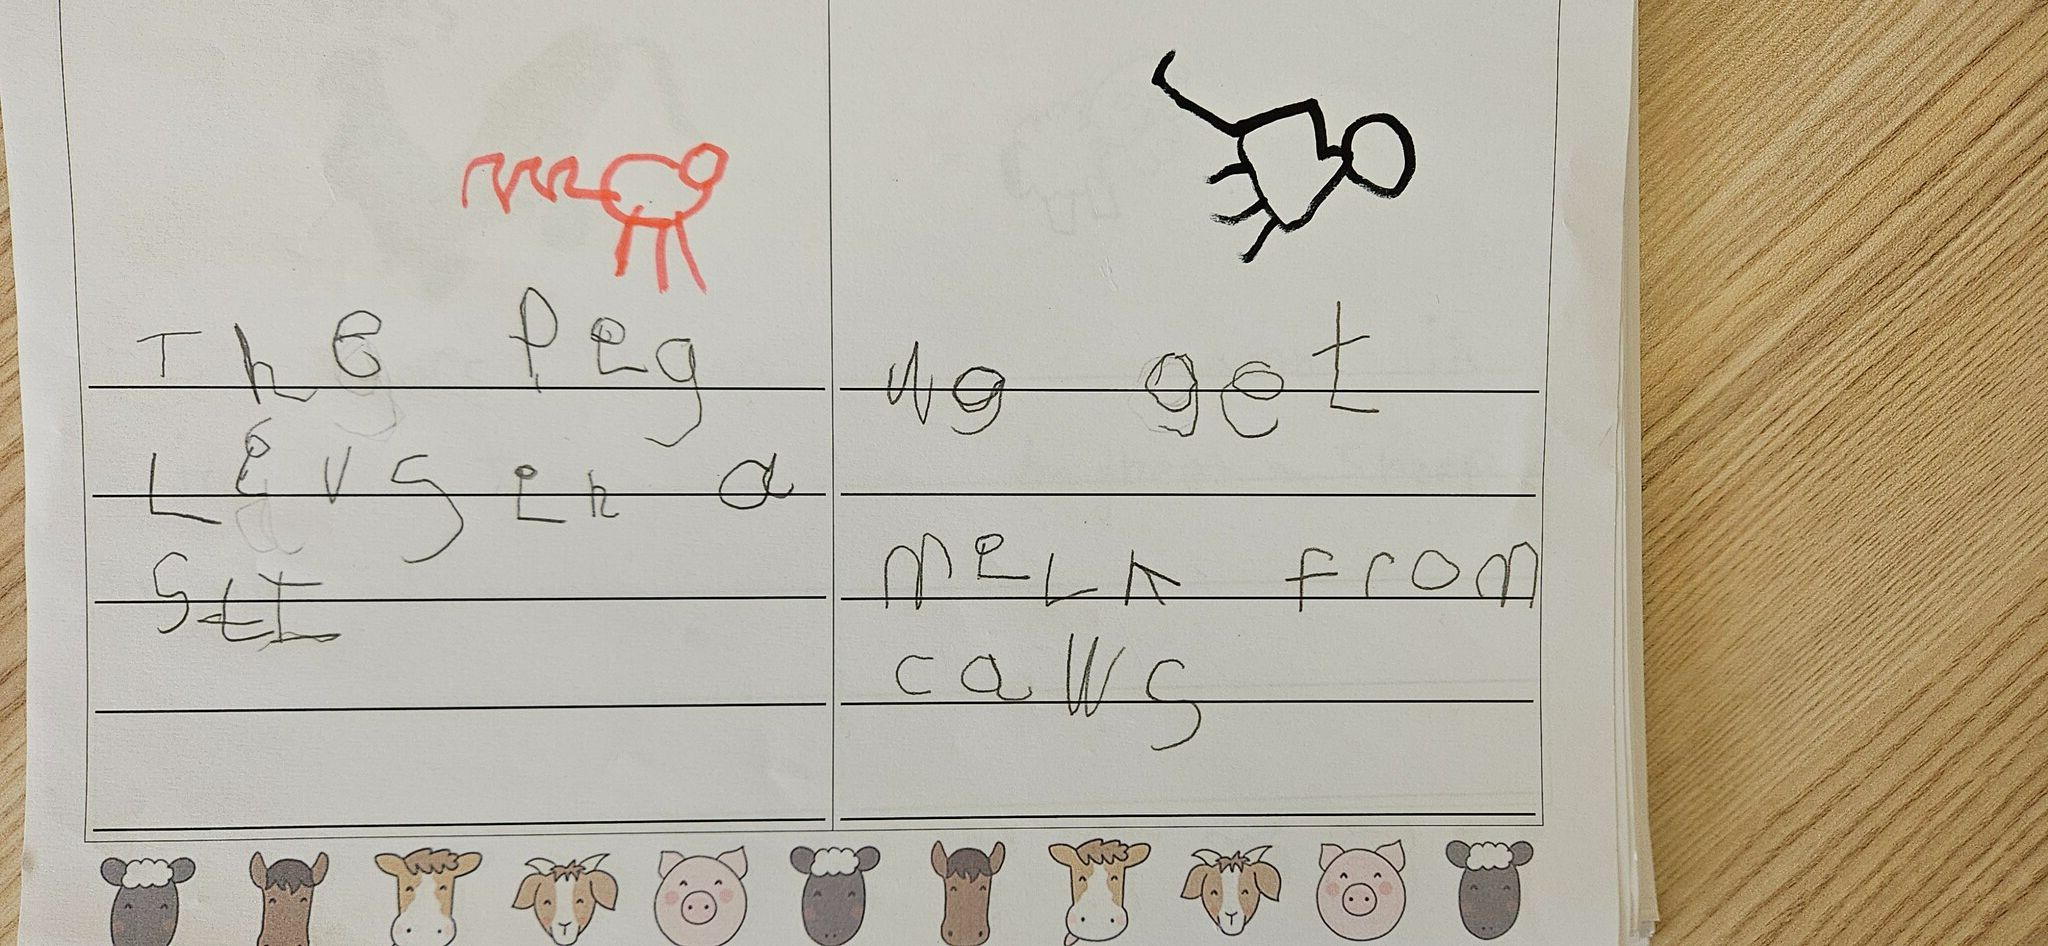 The Peg
Levs en a
stI
we get
melk from
caws